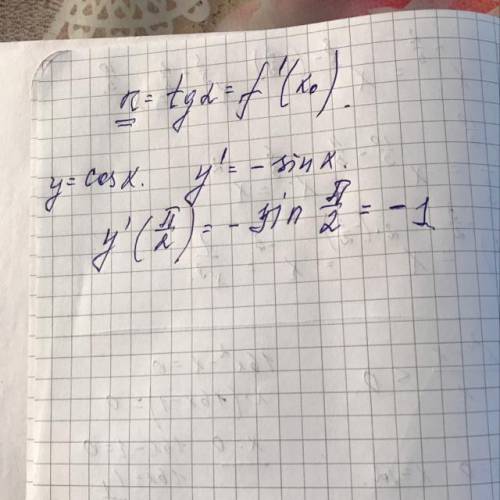 к = tgα = f'(x₀).
y = cosx. y' = - sinx.
y'(π/2) = - sin π/2 = -1